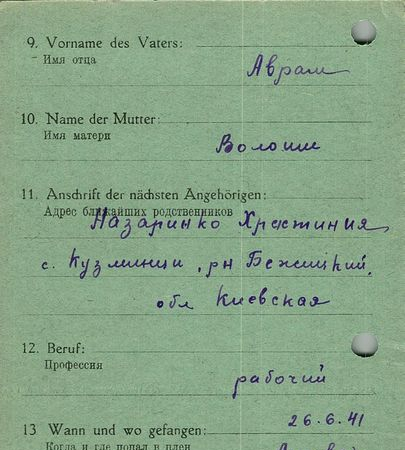 9. Vorname des Vaters:
Имя отца
Аврам
10. Name der Mutter:
Имя матери
Волошин
11. Anschrift der nächsten Angehörigen:
Адрес ближайших родственников
Назаринко Христиния
с. Кузминци, рн
обл Киевская
12. Beruf:
Профессия
рабочий
26.6.41
13 Wann und wo gefangen:
Когда и где попал в плен